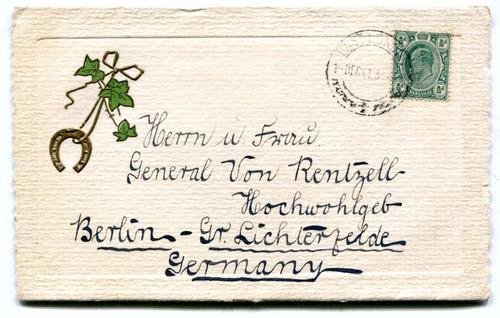 Herrn u. Frau.
General Von Rentzell
Hochwohlgeb
Berlin - Gr. Lichterfelde
Germany